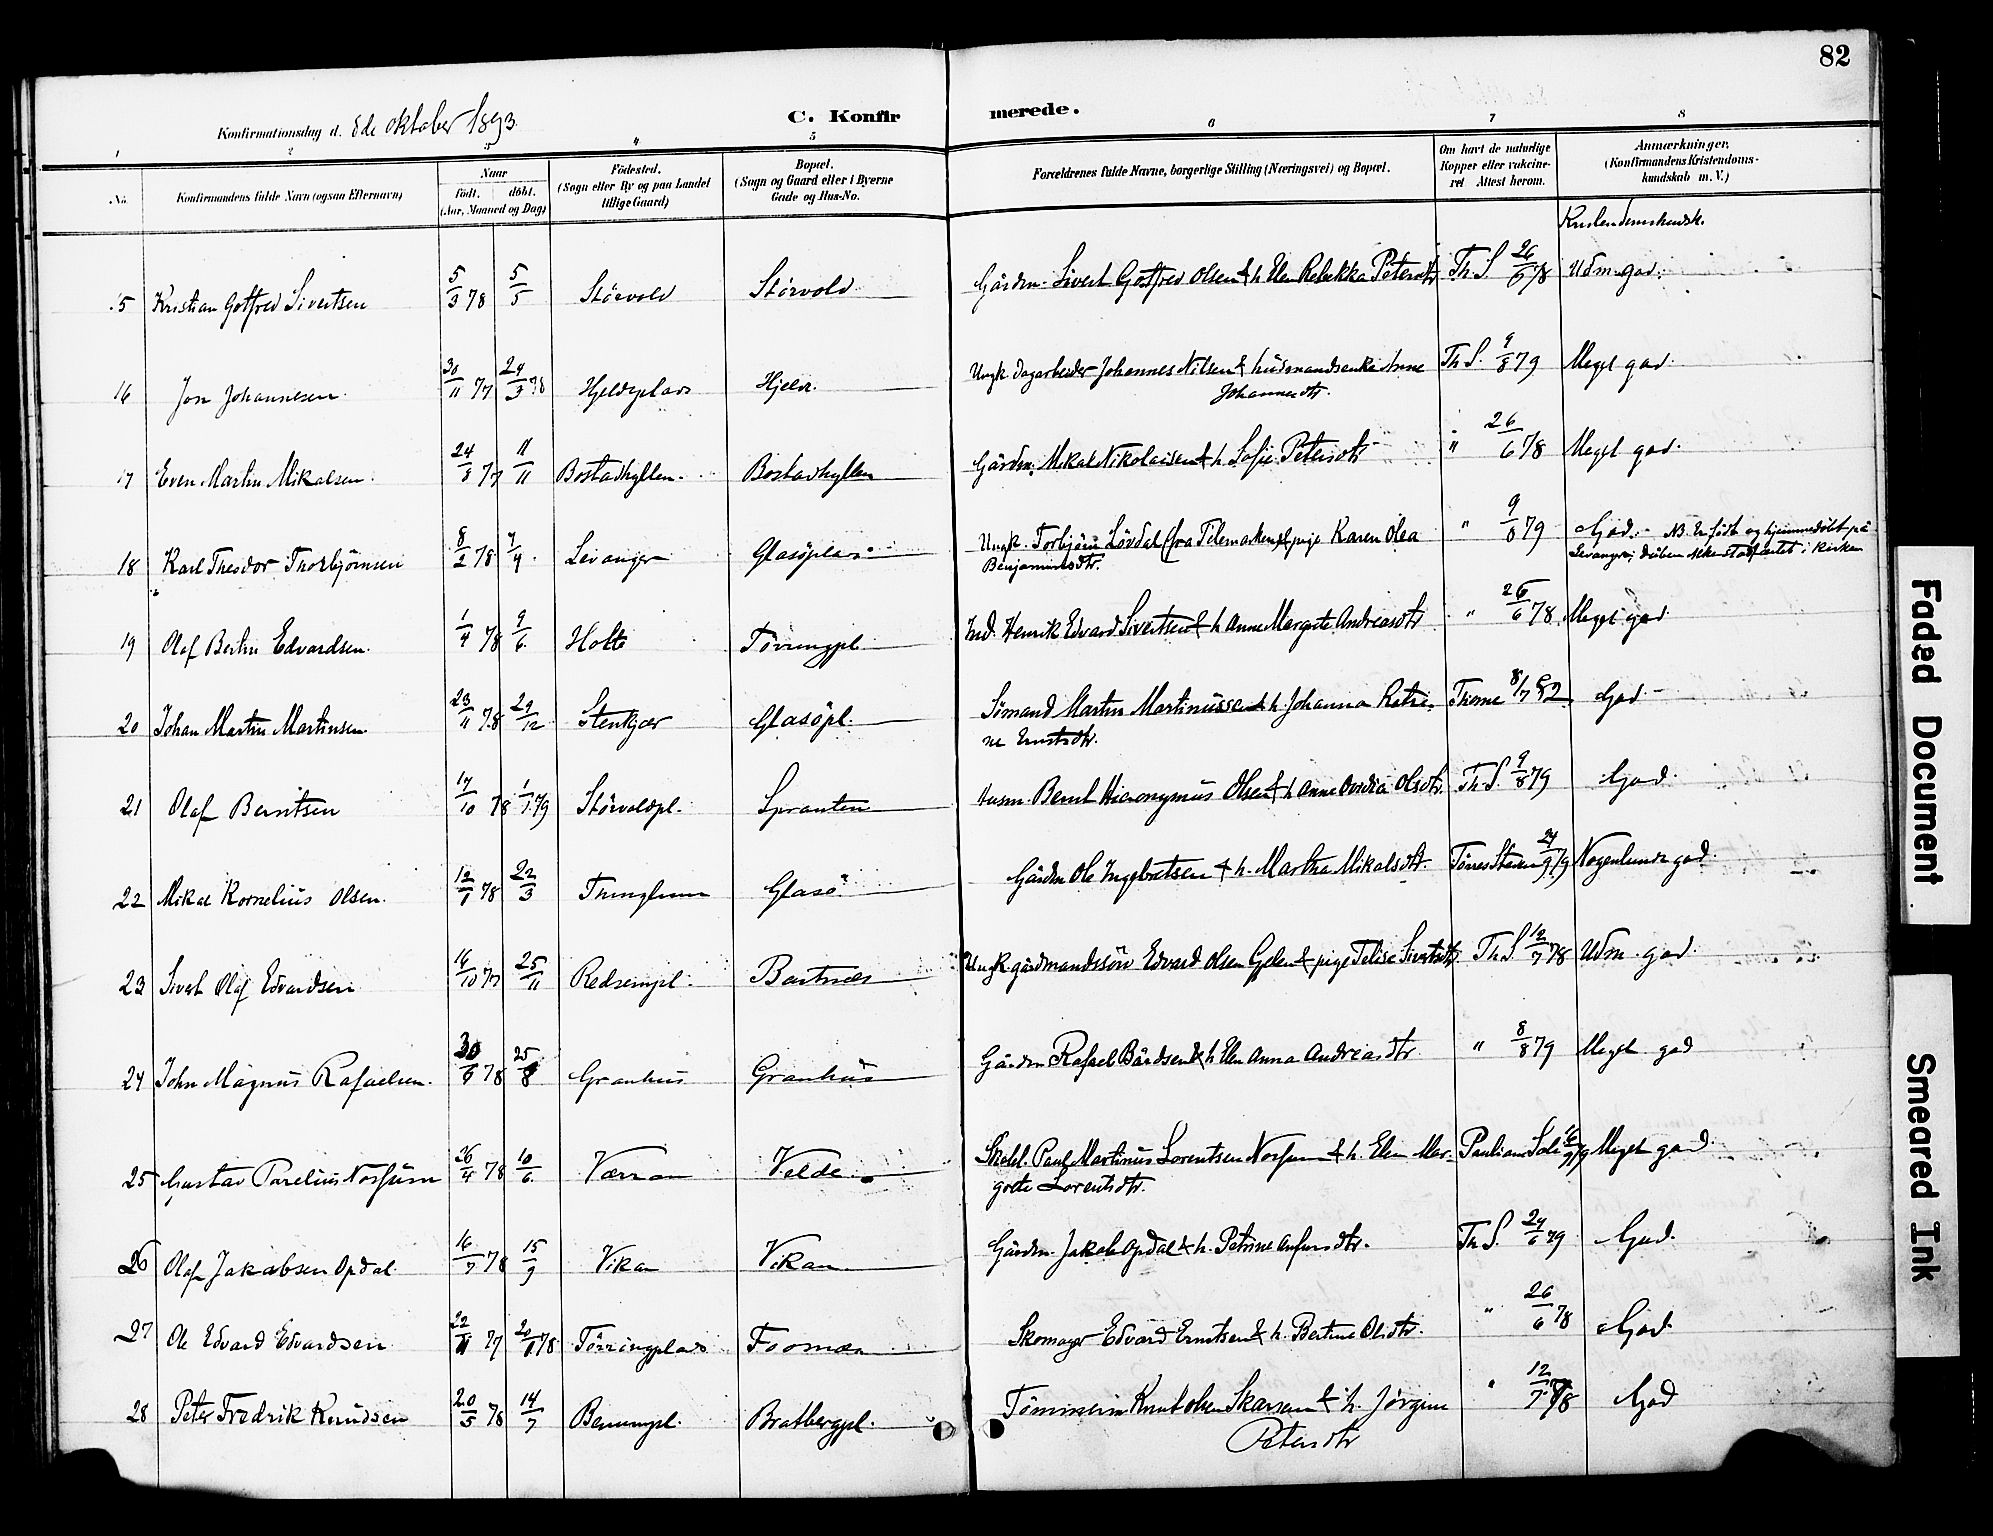 82
Konfirmationsdag d. 8de oktober 1893.
C. Konfirmerede.
1 2 3 4 5 6 7 8
No. Konfirmandens fulde Navn (ogsaa Efternavn) Naar født. døbt. (Aar, Maaned og Dag) Fødested. (Sogn eller By og paa Landet tillige Gaard) Bopæl. (Sogn og Gaard eller i Byerne Gade og Hus-No. Forældrenes fulde Navne, borgerlige Stilling (Næringsvei) og Bopæl. Om havt de naturlige Kopper eller vakcineret Attest herom. Anmærkninger. (Konfirmandens Kristendomskundskab m. V.)
Kristendomskundsk.
15 Kristian Gotfred Sivertsen 5/3 78 5/5 Størvold Størvold Gårdm. Sivert Gotfred Olsen & h. Elen Rebekka Petersdtr Th. S. 26/6 78 Udm. god.
16 Jon Johannesen 30/11 77 24/3 78 Hjeldeplads Hjelde Ungk. dagarbeider Johannes Nilsen & husmandsenke Anne Th. S. 9/8 79 Meget god.
Johannesdtr.
17 Even Martin Mikalsen 24/8 77 11/11 Bostadhyllen. Bostadhyllen Gårdm. Mikal Nikolaisen & h. Sofie Petersdtr " 26/6 78 Meget god.
18 Karl Theodor Thorbjørnsen 8/2 78 7/4 Levanger Glasøplads Ungk. Torbjörn Lövdal (fra Telemarken) & pige Karen Olea " 9/8 79 God. - NB. Er født og hjemmedøbt på
Benjaminsdtr. Levanger; dåben ikke stadfæstet i kirken
19 Olaf Bertin Edvardsen 1/4 78 9/6 Holte Tørringpl. Ind. Henrik Edvard Sivertsen & h. Anne Margrete Andreasdtr " 26/6 78 Meget god
20 Johan Martin Martinsen 23/11 78 29/12 Stenkjær Glasøpl. Sømand Martin Martinussen & h. Johanna Katri- Thorne 8/7 82 God -
ne Ernstsdtr.
21 Olaf Berntsen 17/10 78 1/1 79 Størvoldpl. Spranten Husm. Bernt Hieronymus Olsen & h. Anne Ovidia Olsdtr. Th. S. 9/8 79 God.
22 Mikal Kornelius Olsen 12/1 78 22/3 Glasø Gårdm. Ole Ingebretsen & h. Martha Mikalsdtr. 24/9 79 Nogenlunde god.
23 Sivert Olaf Edvardsen 16/10 77 25/11 Redsempl. Bartnes Ungk. gårdmandssön Edvard Olsen Gelen & pige Telise Sivertsdtr Th. S 12/7 78 Udm. god.
24 John Magnus Rafaelsen 30/6 78 25/8 Granhus Granhus Gårdm Rafael Bårdsen & h. Elen Anna Andreasdtr. " 8/8 79 Meget god
25 Gustav Parelius Norfum 26/4 78 10/6 Værran Velde Skoll. Paul Martinus Lorentsen Norfum & h. Elen Mar- Meget god.
grete Lorentsdtr.
26 Olaf Jakobsen Opdal 16/7 78 15/9 Vikan Vikan Gårdm. Jakob Opdal & h. Petrine Anfinsdtr. Th. S. 24/6 79 God.
27 Ole Edvard Edvardsen 22/11 77 20/1 78 Tørringplads Formo Skomager Edvard Ernstsen & h. Bertine Olsdtr. " 26/6 78 God.
28 Peter Fredrik Knudsen 20/5 78 14/7 Bratbergpl. Tömmerm Knut Olsen & h. Jørgine " 12/7 78 God
Petersdtr
Faded Document
Smeared Ink